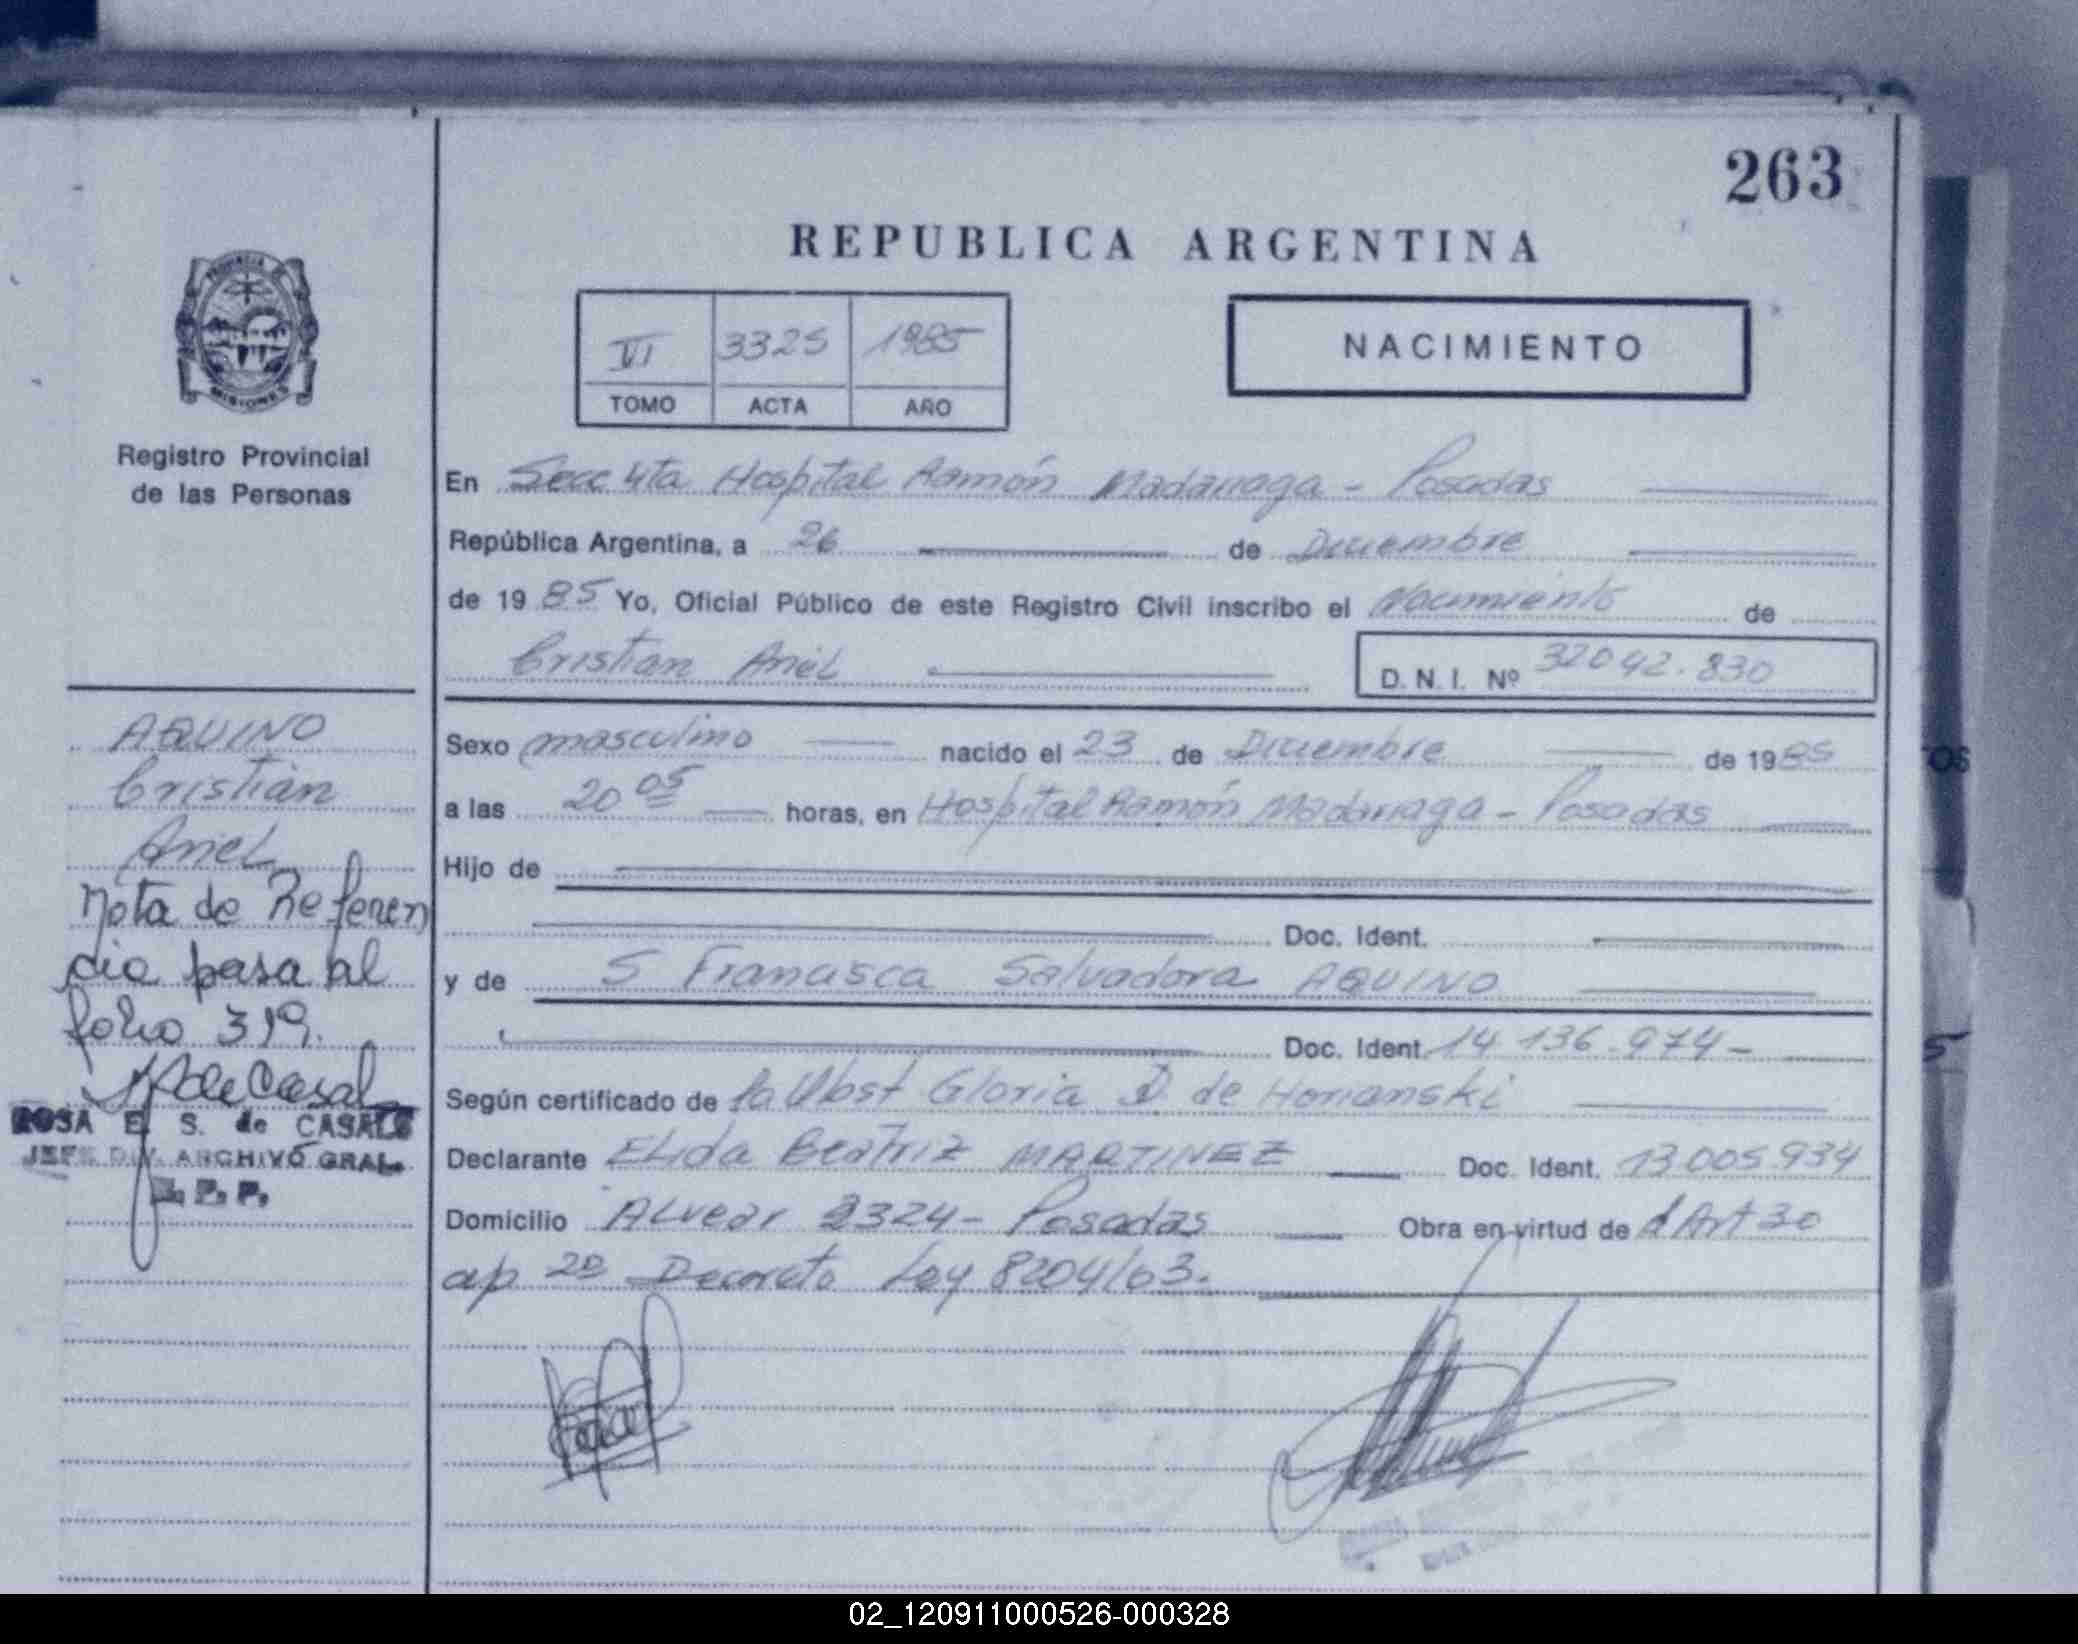 263
REPUBLICA ARGENTINA
PROVINCIA DE
MISIONES
Registro Provincial
de las Personas
VI 3325 1985
TOMO ACTA AÑO
NACIMIENTO
En Secc 4ta Hospital Ramón Madariaga - Posadas
República Argentina, a 26 de Diciembre
de 1985 Yo, Oficial Público de este Registro Civil inscribo el Nacimiento de
Cristian Ariel
D. N. I. Nº 32042.830
AQUINO
Cristian
Ariel
Nota de Referen
cia pasa al
folio 319.
ROSA E. S. de CASALS
JEFE DIV. ARCHIVO GRAL.
R. P. P.
Sexo masculino nacido el 23 de Diciembre de 1985
a las 20 05 horas, en Hospital Ramón Madariaga - Posadas
Hijo de
Doc. Ident.
y de S Francisca Salvadora AQUINO
Doc. Ident. 14 136.974-
Según certificado de la Obst Gloria D. de Horianski
Declarante Elida Beatriz MARTINEZ Doc. Ident. 13.005.934
Domicilio Alvear 2324 - Posadas Obra en virtud de d Art 30
ap 2º Decreto Ley 8204/63.
OS
5
02_120911000526-000328